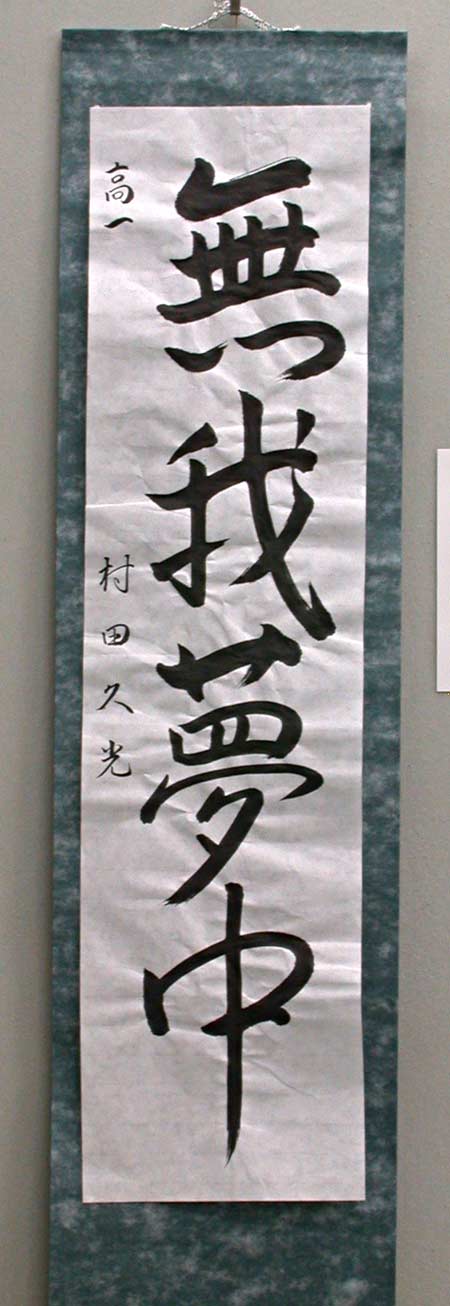 無我夢中
高一 村田久光